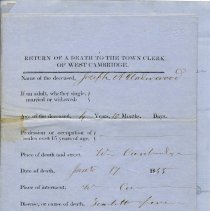 RETURN OF A DEATH TO THE TOWN CLERK
OF WEST CAMBRIDGE.
Name of the deceased, Joseph A Underwood
If an adult, whether single,
married or widowed:
Age of the deceased, Years, Months, Days.
Profession or occupation of
males over 15 years of age.
Place of death and street. W. Cambridge
Date of death. 1855
Place of interment, W. Cam
Disease, or cause of death, Scarlet fever